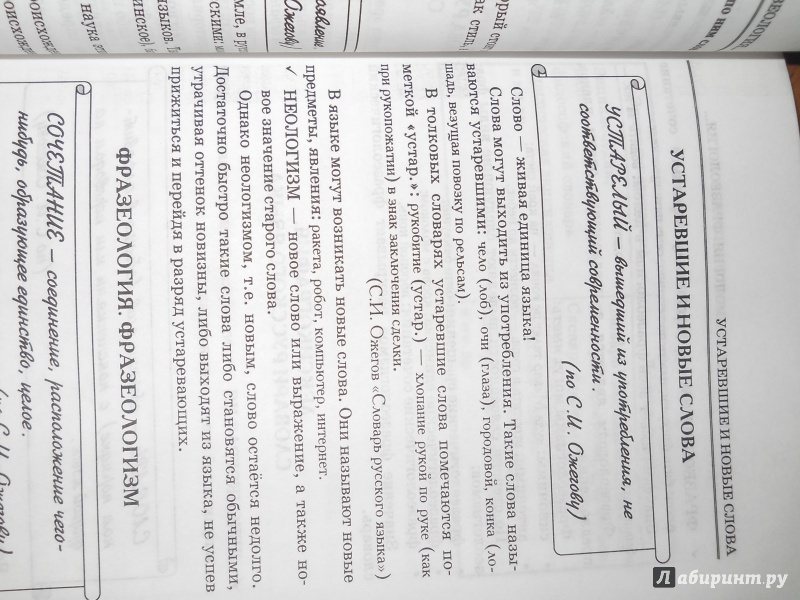 УСТАРЕВШИЕ И НОВЫЕ СЛОВА
УСТАРЕВШИЕ И НОВЫЕ СЛОВА
УСТАРЕЛЫЙ – вышедший из употребления, не
соответствующий современности.
(по С.И. Ожегову)
Слово — живая единица языка!
Слова могут выходить из употребления. Такие слова назы-
ваются устаревшими: чело (лоб), очи (глаза), городовой, конка (ло-
шадь, везущая повозку по рельсам).
В толковых словарях устаревшие слова помечаются по-
меткой «устар.»: рукобитие (устар.) — хлопание рукой по руке (как
при рукопожатии) в знак заключения сделки.
(С.И. Ожегов «Словарь русского языка»)
В языке могут возникать новые слова. Они называют новые
предметы, явления: ракета, робот, компьютер, интернет.
✓ НЕОЛОГИЗМ — новое слово или выражение, а также но-
вое значение старого слова.
Однако неологизмом, т.е. новым, слово остаётся недолго.
Достаточно быстро такие слова либо становятся обычными,
утрачивая оттенок новизны, либо выходят из языка, не успев
прижиться и перейдя в разряд устаревающих.
ФРАЗЕОЛОГИЯ. ФРАЗЕОЛОГИЗМ
СОЧЕТАНИЕ – соединение, расположение чего-
нибудь, образующее единство, целое.
(по С.И. Ожегову)
Лабиринт.ру